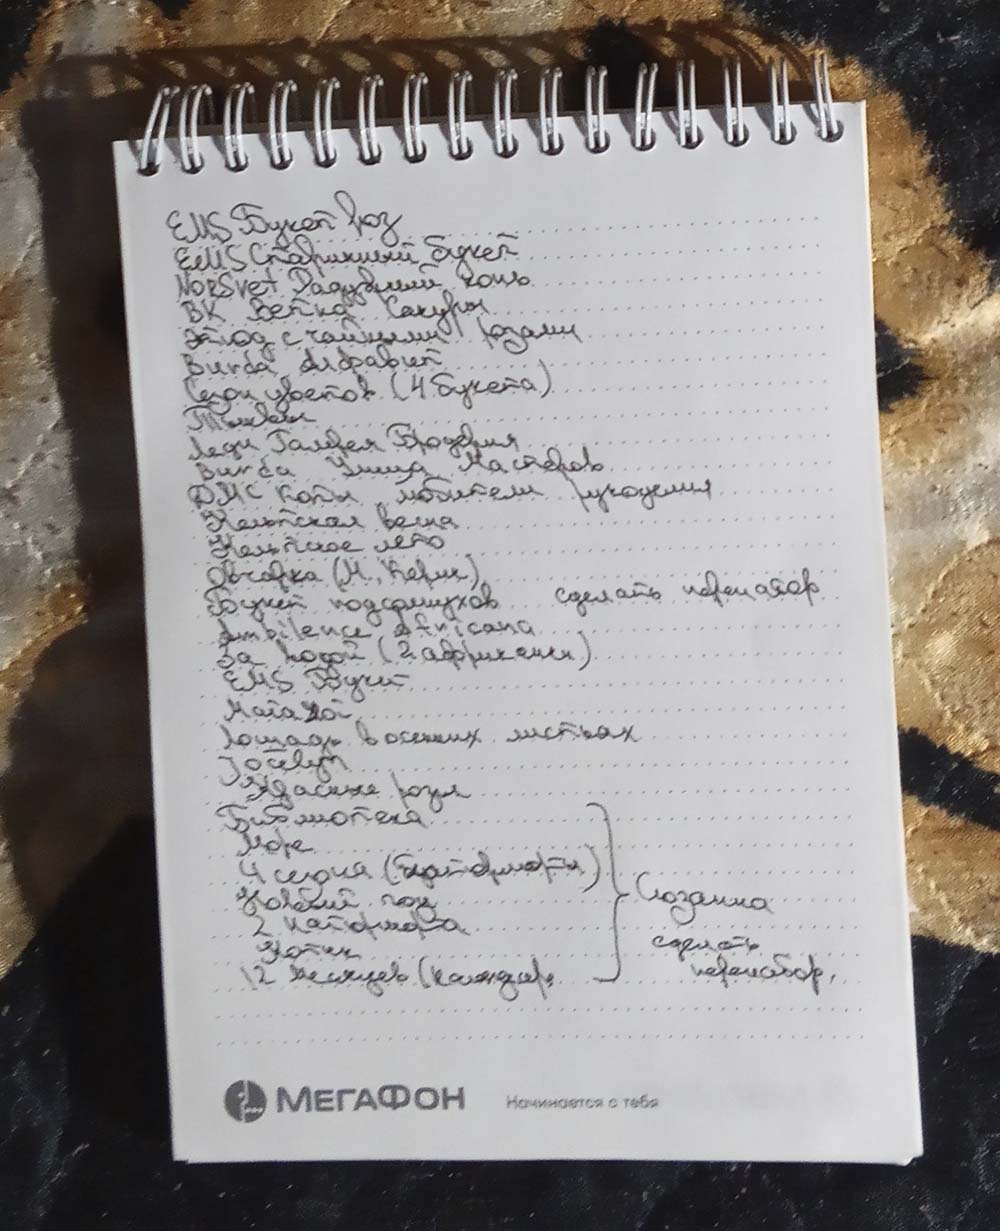 EMS Букет роз
EMS Старинный букет
NopSvet Радужный конь
ВК Ветка Сакуры
Этюд с чайными розами
Burda Алфавит
Сезон цветов (4 букета)
Леди Галерея Бродерия
Burda Улица Мастеров
ДМС Коты любители рукоделия
Кельтская весна
Кельтское лето
Овчарка (М., Керик)
Букет подсолнухов сделать перенабор
Ambilence Africana
За водой (2 африканки)
EMS Букет
Лошадь в осенних листьях
Jocelyn
розы
Библиотека
Море
4 сезона
Новый год
2 натюрморта
Котик
12 месяцев (календарь
Сюзанна
сделать
перенабор.
МЕГАФОН
Начинается с тебя